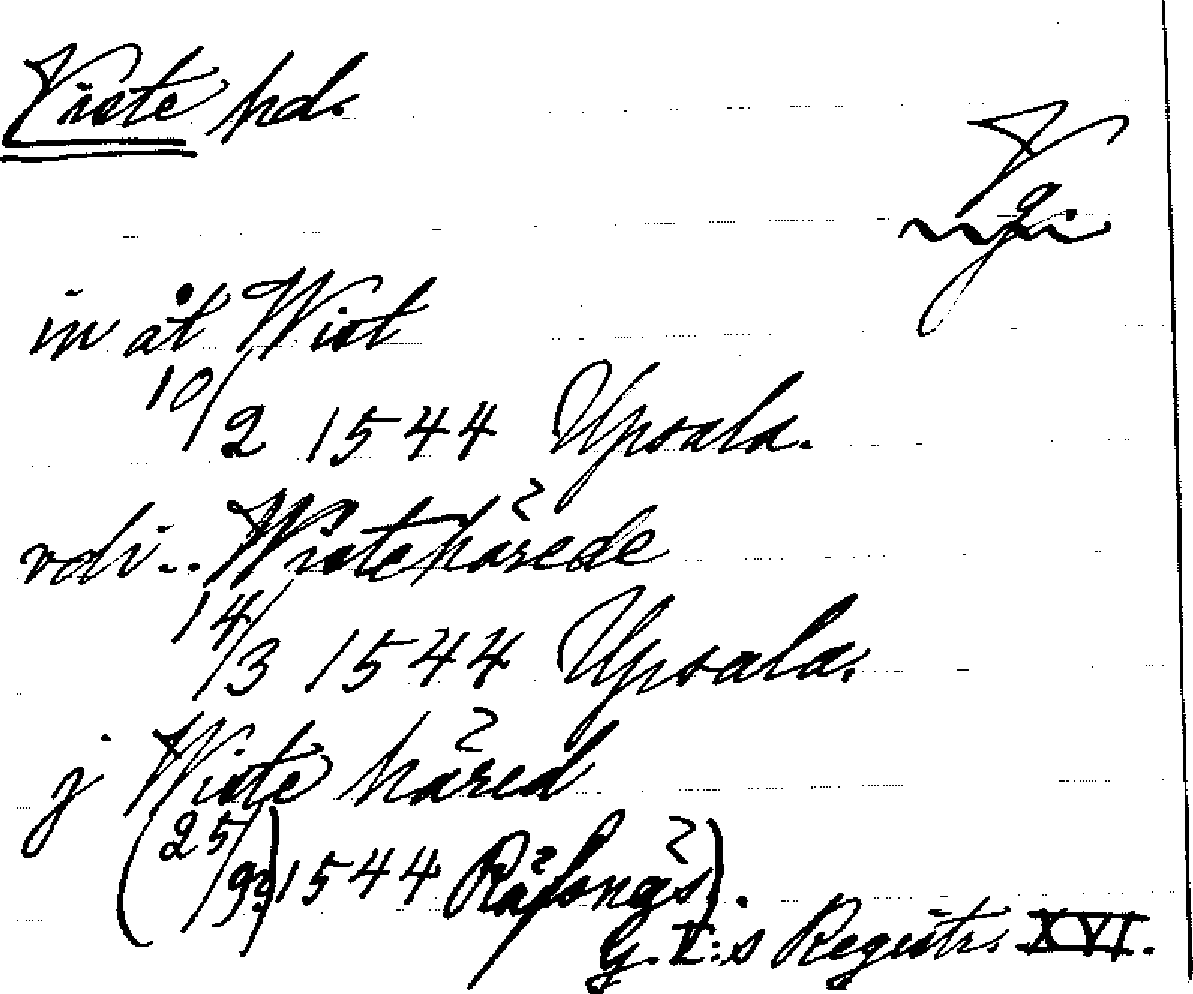 Viste hd.
Vg.
in åt Wist
10/2 1544 Upsala.
vdi.. Wistehärede
14/3 1544 Upsala.
j Wiste häred
(25/9?) 1544 Räfsnäs).
G. I:s Registr. XVI.